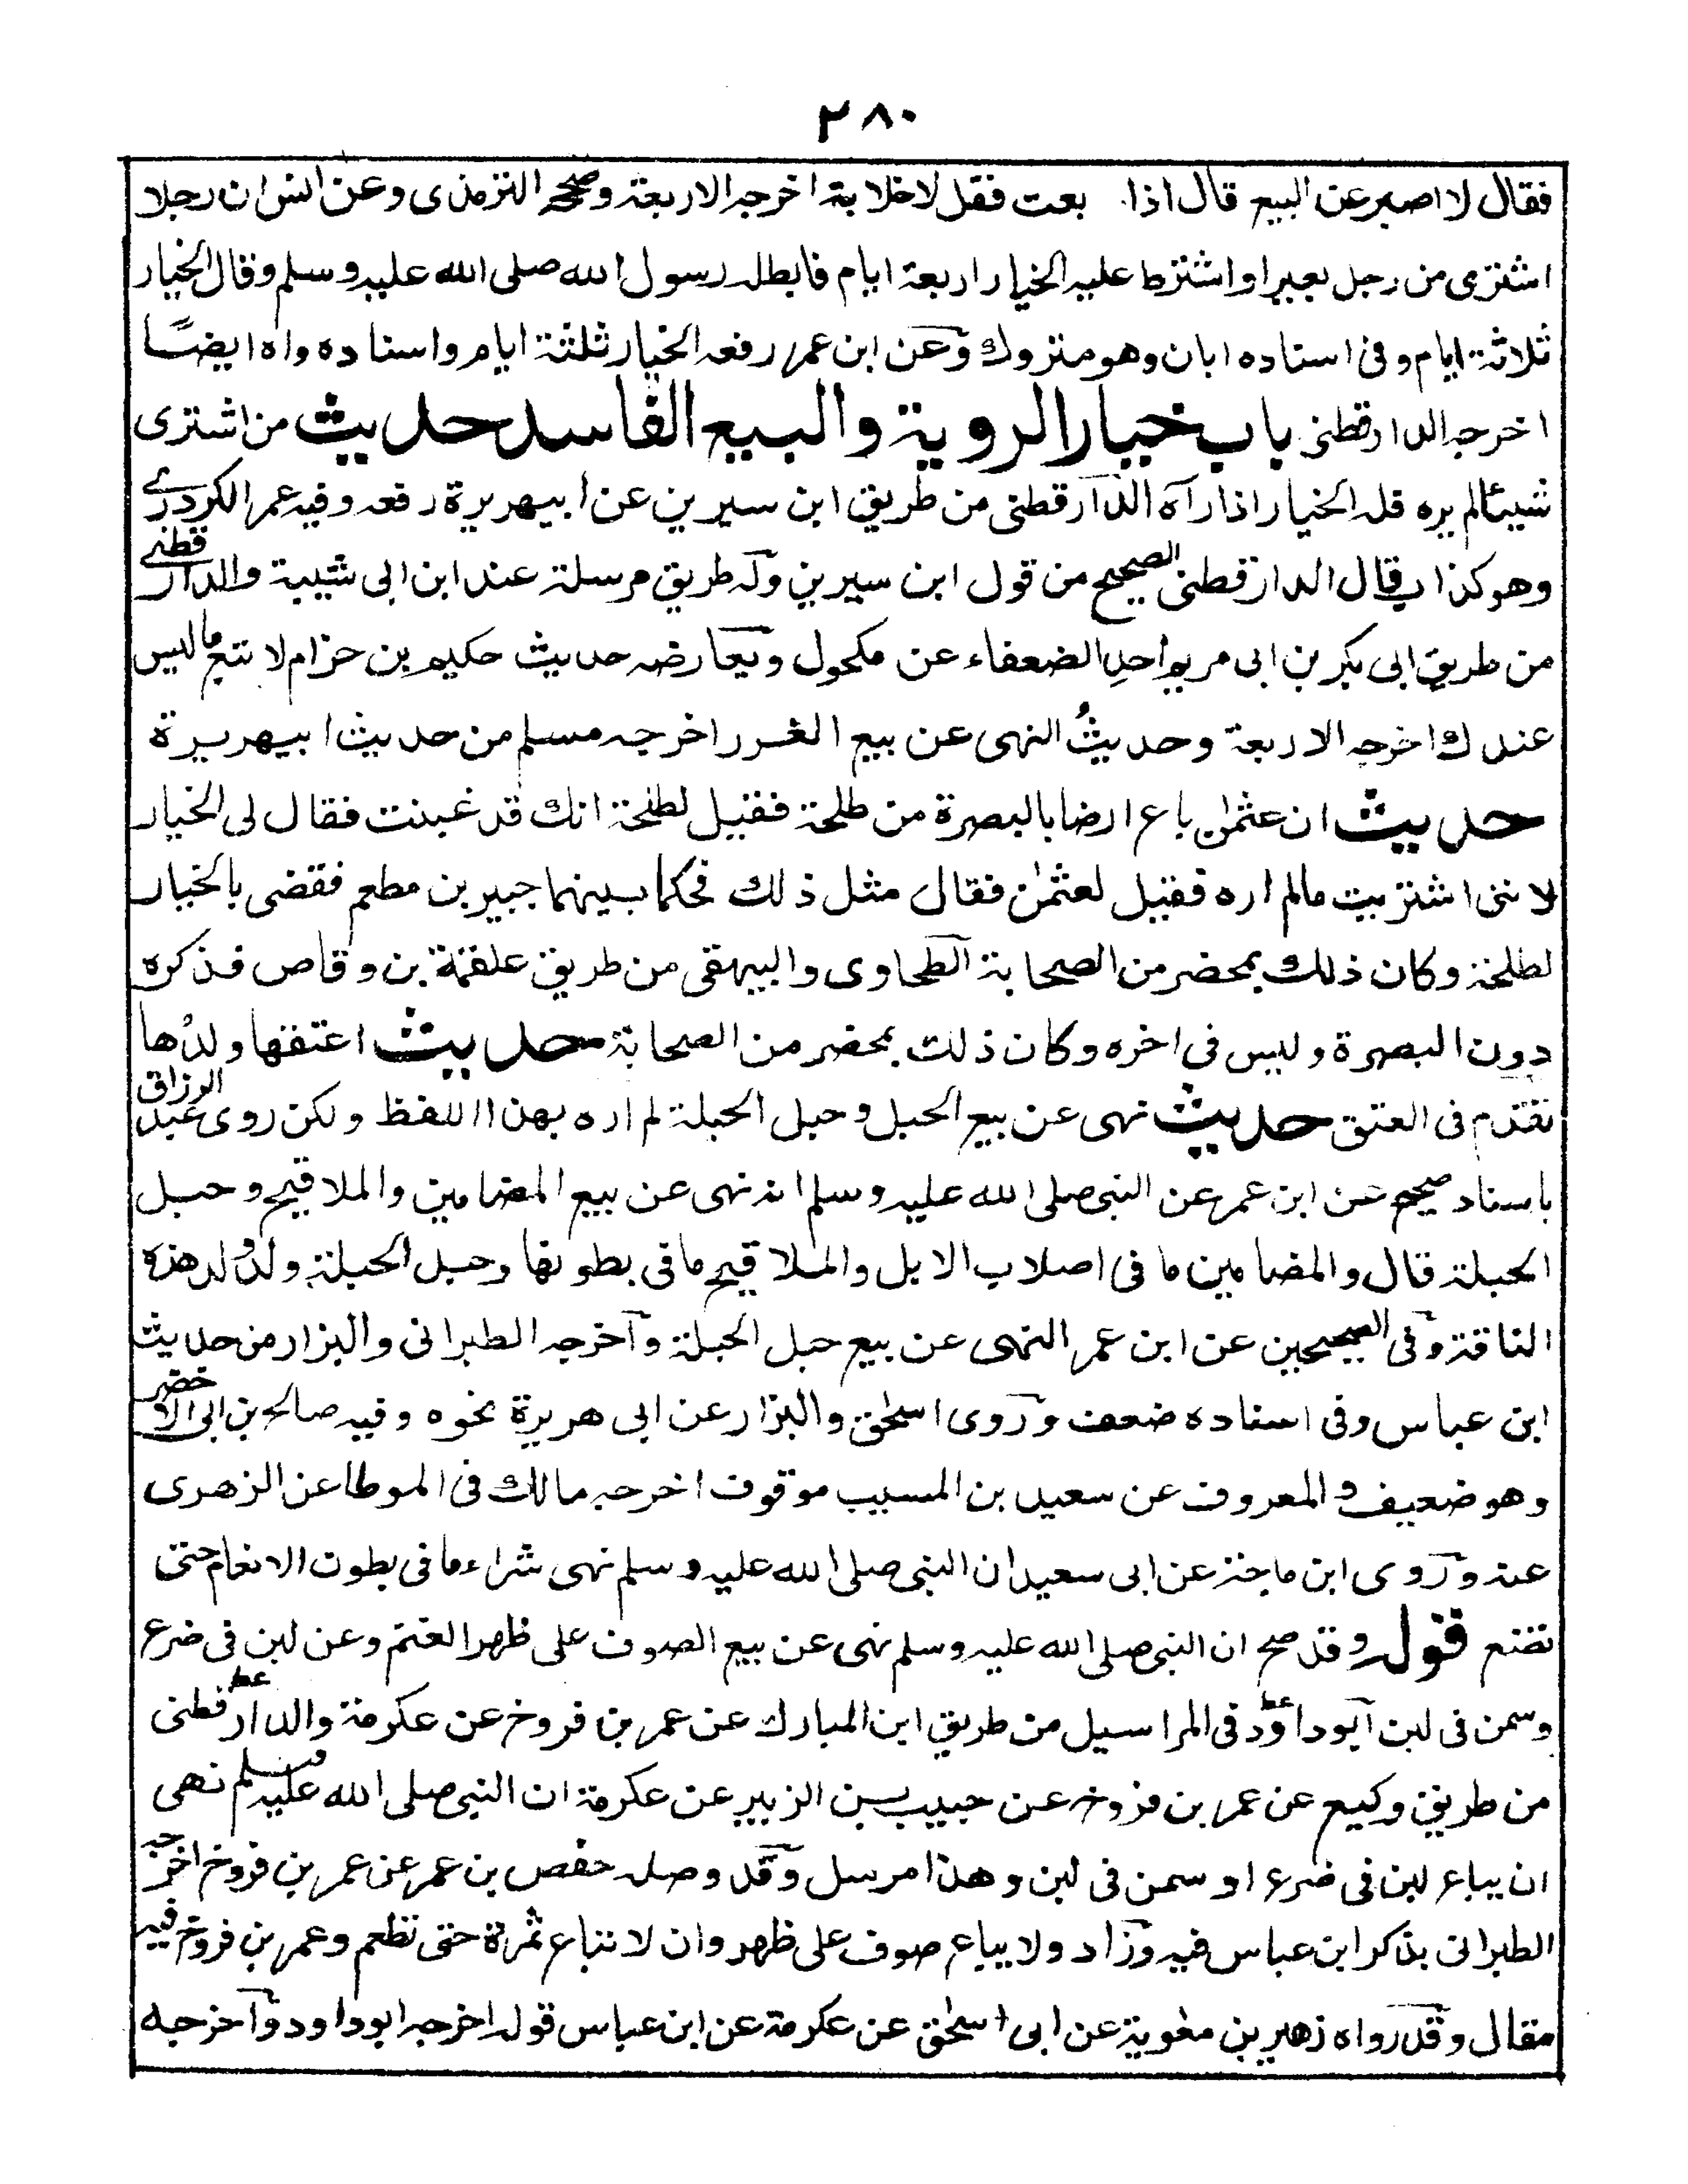 ٢٨٠
فقال لا اصبر عن البيع قال اذا بعت فقل لا خلابة اخرجه الاربعة وصححه الترمذى وعن انس ان رجلا
اشترى من رجل بعيرا واشترط عليه الخيار اربعة ايام فابطله رسول الله صلى الله عليه وسلم وقال الخيار
ثلاثة ايام وفى اسناده ابان وهو متروك وعن ابن عمر رفعه الخيار ثلثة ايام واسناده واه ايضًا
اخرجه الدارقطنى باب خيار الروية والبيع الفاسد حديث من اشترى
شيئا لم يره فله الخيار اذا رآه الدارقطنى من طريق ابن سيرين عن ابيهريرة رفعه وفيه عمر الكردى
وهو كذاب قال الدارقطنى الصحيح من قول ابن سيرين وله طريق مرسلة عند ابن ابى شيبة والدارقطنى
من طريق ابى بكر بن ابى مريم احد الضعفاء عن مكحول ويعارضه حديث حكيم بن حزام لا تبع ما ليس
عندك اخرجه الاربعة وحديثُ النهى عن بيع الغرر اخرجه مسلم من حديث ابيهريرة
حديث ان عثمٰن باع ارضا بالبصرة من طلحة فقيل لطلحة انك قد غبنت فقال لى الخيار
لاننى اشتريت مالم اره فقيل لعثمٰن فقال مثل ذلك فحكما بينهما جبير بن مطعم فقضى بالخيار
لطلحة وكان ذلك بمحضر من الصحابة الطحاوى والبيهقى من طريق علقمة بن وقاص فذكره
دون البصرة وليس فى اخره وكان ذلك بمحضر من الصحابة حديث اعتقها ولدُها
تقدم فى العتق حديث نهى عن بيع الحبل وحبل الحبلة لم اره بهذا اللفظ ولكن روى عبد الرزاق
باسناد صحيح عن ابن عمر عن النبى صلى الله عليه وسلم انه نهى عن بيع المضامين والملاقيح وحبل
الحبلة قال والمضامين ما فى اصلاب الابل والملاقيح ما فى بطونها وحبل الحبلة ولدُ ولد هذه
الناقة وفى الصحيحين عن ابن عمر النهى عن بيع حبل الحبلة وآخرجه الطبرانى والبزار من حديث
ابن عباس وفى اسناده ضعف وروى اسحٰق والبزار عن ابى هريرة نحوه وفيه صالح بن ابى الاخضر
وهو ضعيف والمعروف عن سعيد بن المسيب موقوف اخرجه مالك فى الموطا عن الزهرى
عنه وروى ابن ماجة عن ابى سعيد ان النبى صلى الله عليه وسلم نهى شراء ما فى بطون الانعام حتى
تضع قوله وقد صح ان النبى صلى الله عليه وسلم نهى عن بيع الصوف على ظهر الغنم وعن لبن فى ضرع
وسمن فى لبن آبوداؤد فى المراسيل من طريق ابن المبارك عن عمر بن فروخ عن عكرمة والدارقطنى
من طريق وكيع عن عمر بن فروخ عن حبيب بن الزبير عن عكرمة ان النبى صلى الله عليه وسلم نهى
ان يباع لبن فى ضرع او سمن فى لبن وهذا مرسل وقد وصله حفص بن عمر عن عمر بن فروخ اخرجه
الطبرانى بذكر ابن عباس فيه وزاد ولا يباع صوف على ظهر وان لا تباع ثمرة حتى تطعم وعمر بن فروخ فيه
مقال وقد رواه زهير بن معٰوية عن ابى اسحٰق عن عكرمة عن ابن عباس قوله اخرجه ابوداود وآخرجه